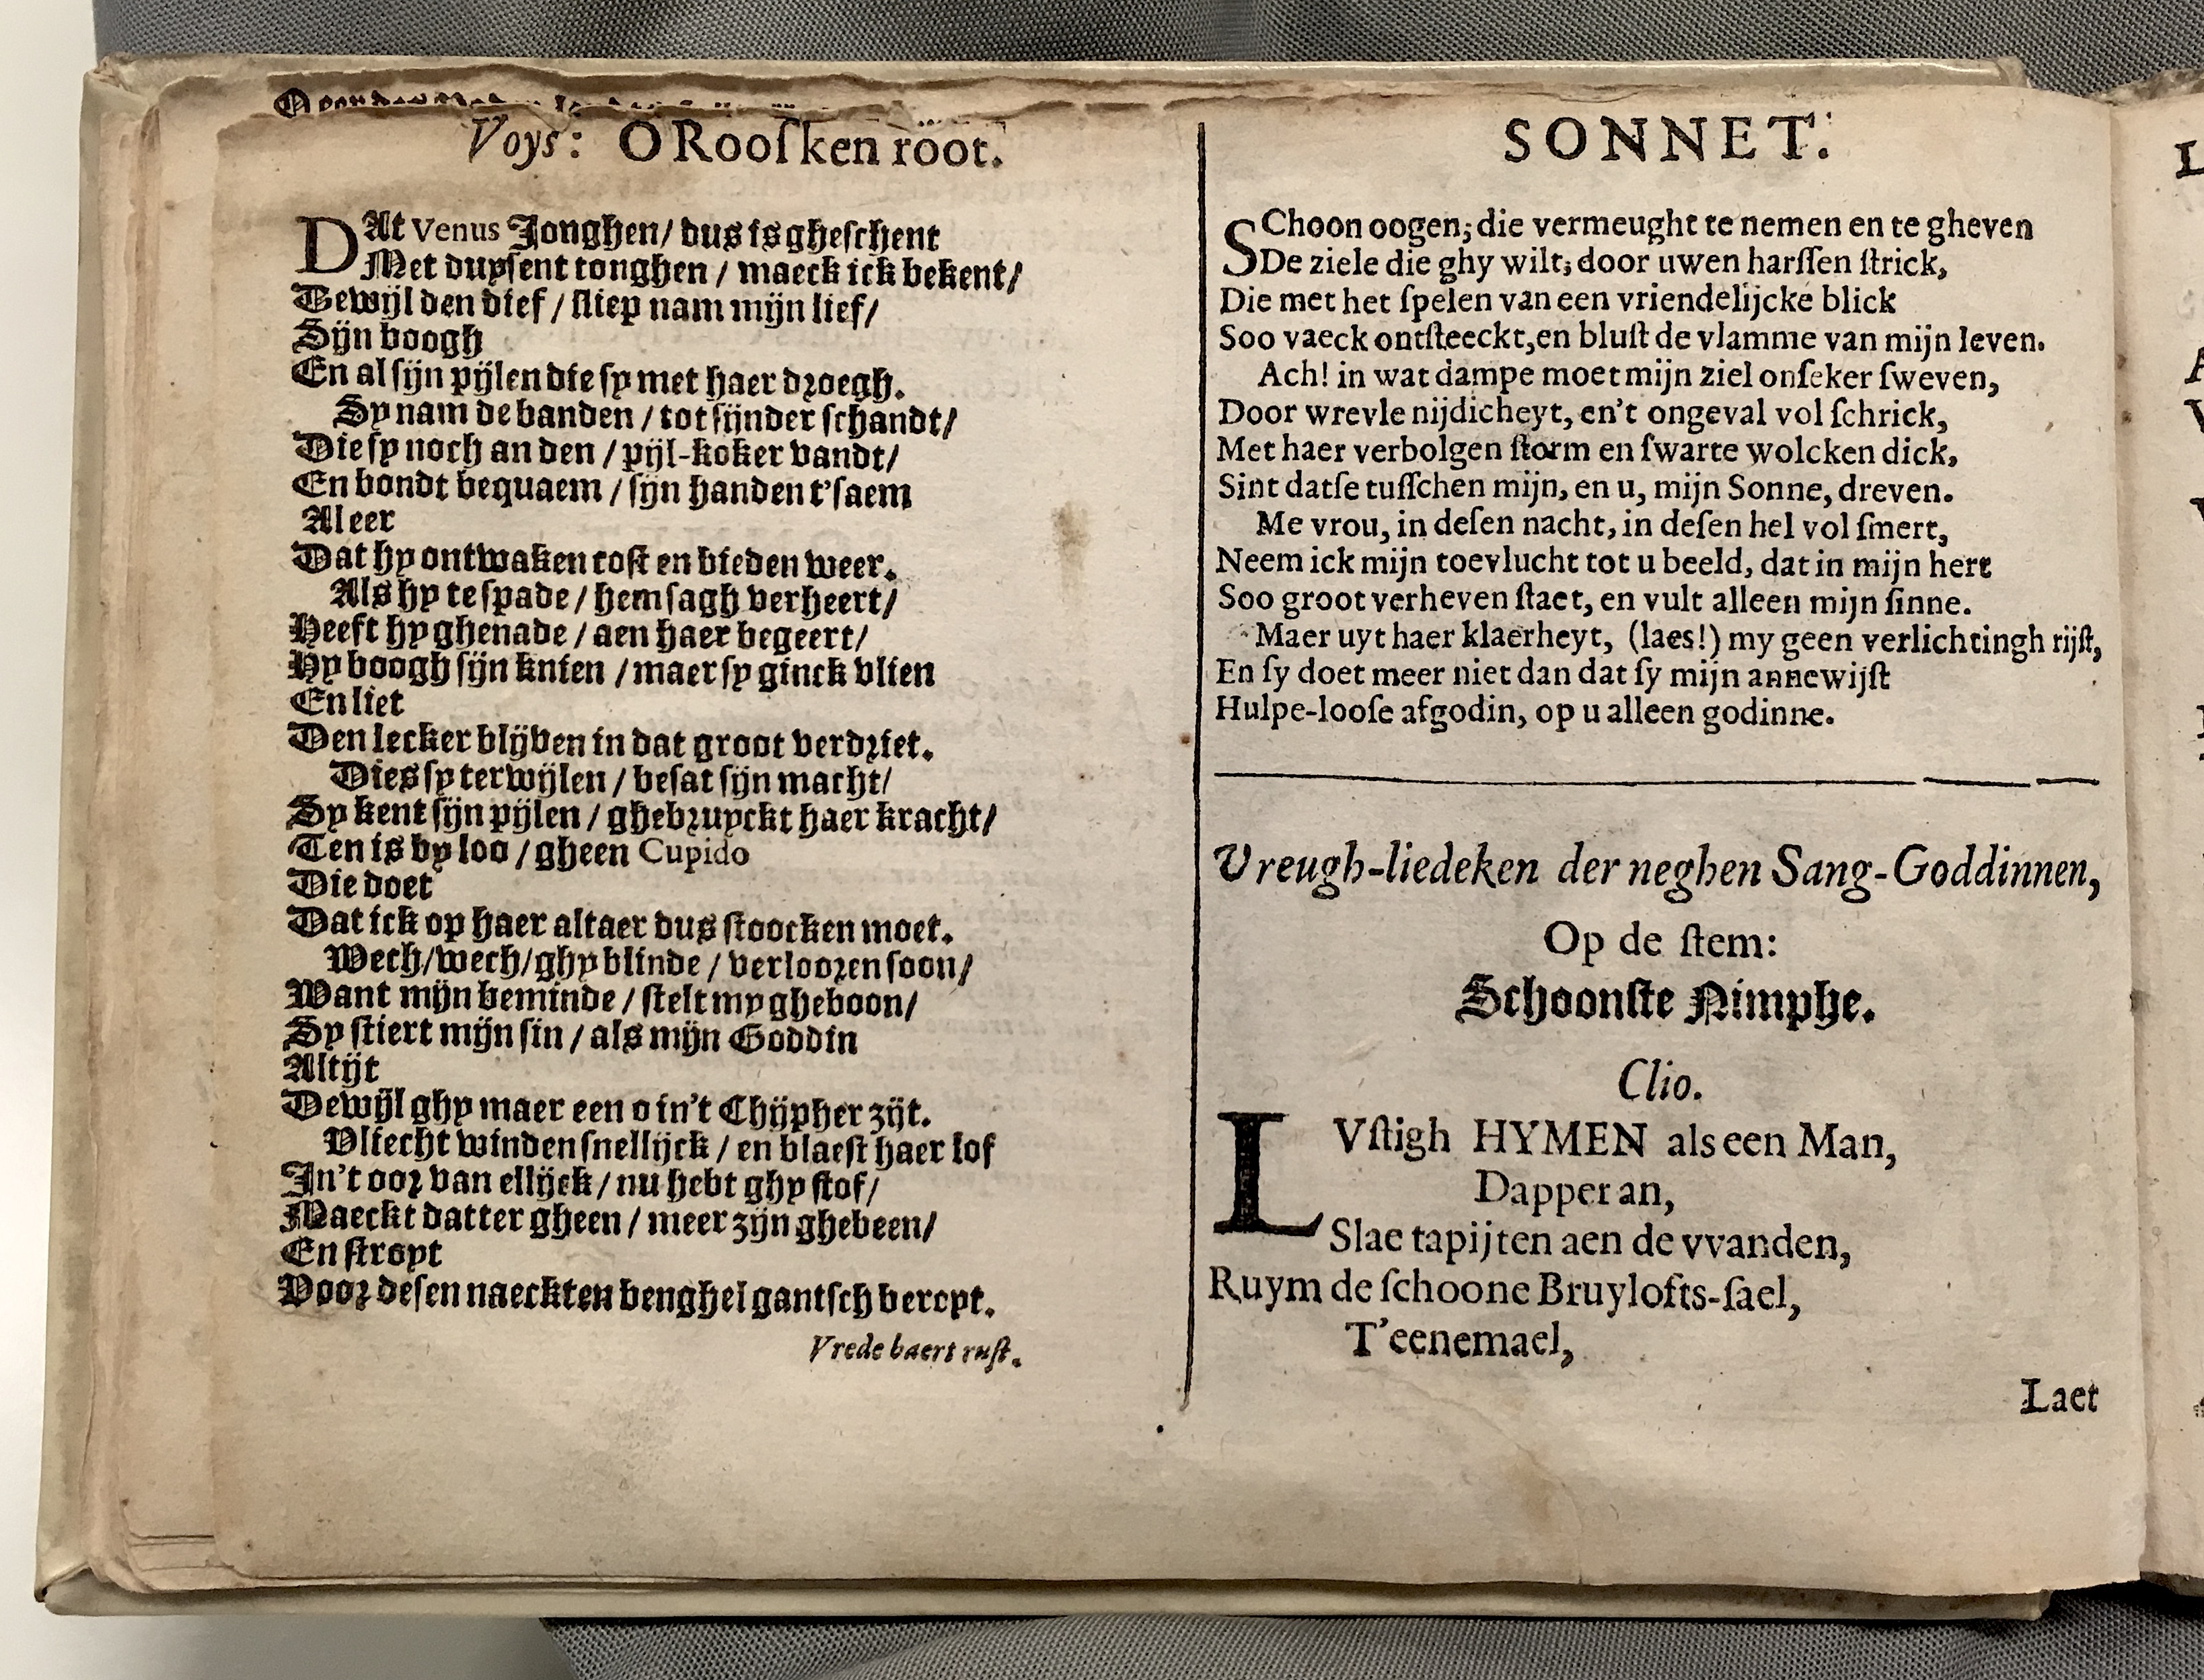 Voys: O Rooſken root.
DAt Venus Jonghen / dus is gheſchent
Met duyſent tonghen / maeck ick bekent /
Tewijl den dief / ſliep nam mijn lief /
Sijn boogh
En al ſijn pijlen die ſy met haer droegh.
Sy nam de banden / tot ſijnder ſchandt /
Die ſy noch an den / pijl-koker vandt /
En bondt bequaem / ſijn handen t'ſaem
Al eer
Dat hy ontwaken coſt en bieden weer.
Als hy te ſpade / hem ſagh verheert /
Heeft hy ghenade / aen haer begeert /
Hy boogh ſijn knien / maer ſy ginck vlien
En liet
Den lecker blijven in dat groot verdriet.
Dies ſy terwijlen / beſat ſijn macht /
Sy kent ſijn pijlen / ghebruyckt haer kracht /
Ten is by loo / gheen Cupido
Die doet
Dat ick op haer altaer dus ſtoocken moet.
Wech / wech / ghy blinde / verlooren ſoon /
Want mijn beminde / ſtelt my gheboon /
Sy ſtiert mijn ſin / als mijn Goddin
Altijt
Dewijl ghy maer een o in't Chijpher zijt.
Vliecht winden ſnellijck / en blaeſt haer lof
In't oor van ellijck / nu hebt ghy ſtof /
Maeckt datter gheen / meer zijn ghebeen /
En ſtropt
Voor deſen naeckten benghel gantſch beropt.
Vrede baert ruſt.
SONNET.
SChoon oogen; die vermeught te nemen en te gheven
De ziele die ghy wilt; door uwen harſſen ſtrick,
Die met het ſpelen van een vriendelijcke blick
Soo vaeck ontſteeckt, en bluſt de vlamme van mijn leven.
Ach! in wat dampe moet mijn ziel onſeker ſweven,
Door wrevle nijdicheyt, en't ongeval vol ſchrick,
Met haer verbolgen ſtorm en ſwarte wolcken dick,
Sint datſe tuſſchen mijn, en u, mijn Sonne, dreven.
Me vrou, in deſen nacht, in deſen hel vol ſmert,
Neem ick mijn toevlucht tot u beeld, dat in mijn hert
Soo groot verheven ſtaet, en vult alleen mijn ſinne.
Maer uyt haer klaerheyt, (laes!) my geen verlichtingh rijſt,
En ſy doet meer niet dan dat ſy mijn annewijſt
Hulpe-looſe afgodin, op u alleen godinne.
Vreugh-liedeken der neghen Sang-Goddinnen,
Op de ſtem:
Schoonſte Nimphe.
Clio.
LVſtigh HYMEN als een Man,
Dapper an,
Slae tapijten aen de vvanden,
Ruym de ſchoone Bruylofts-ſael,
T'eenemael,
Laet